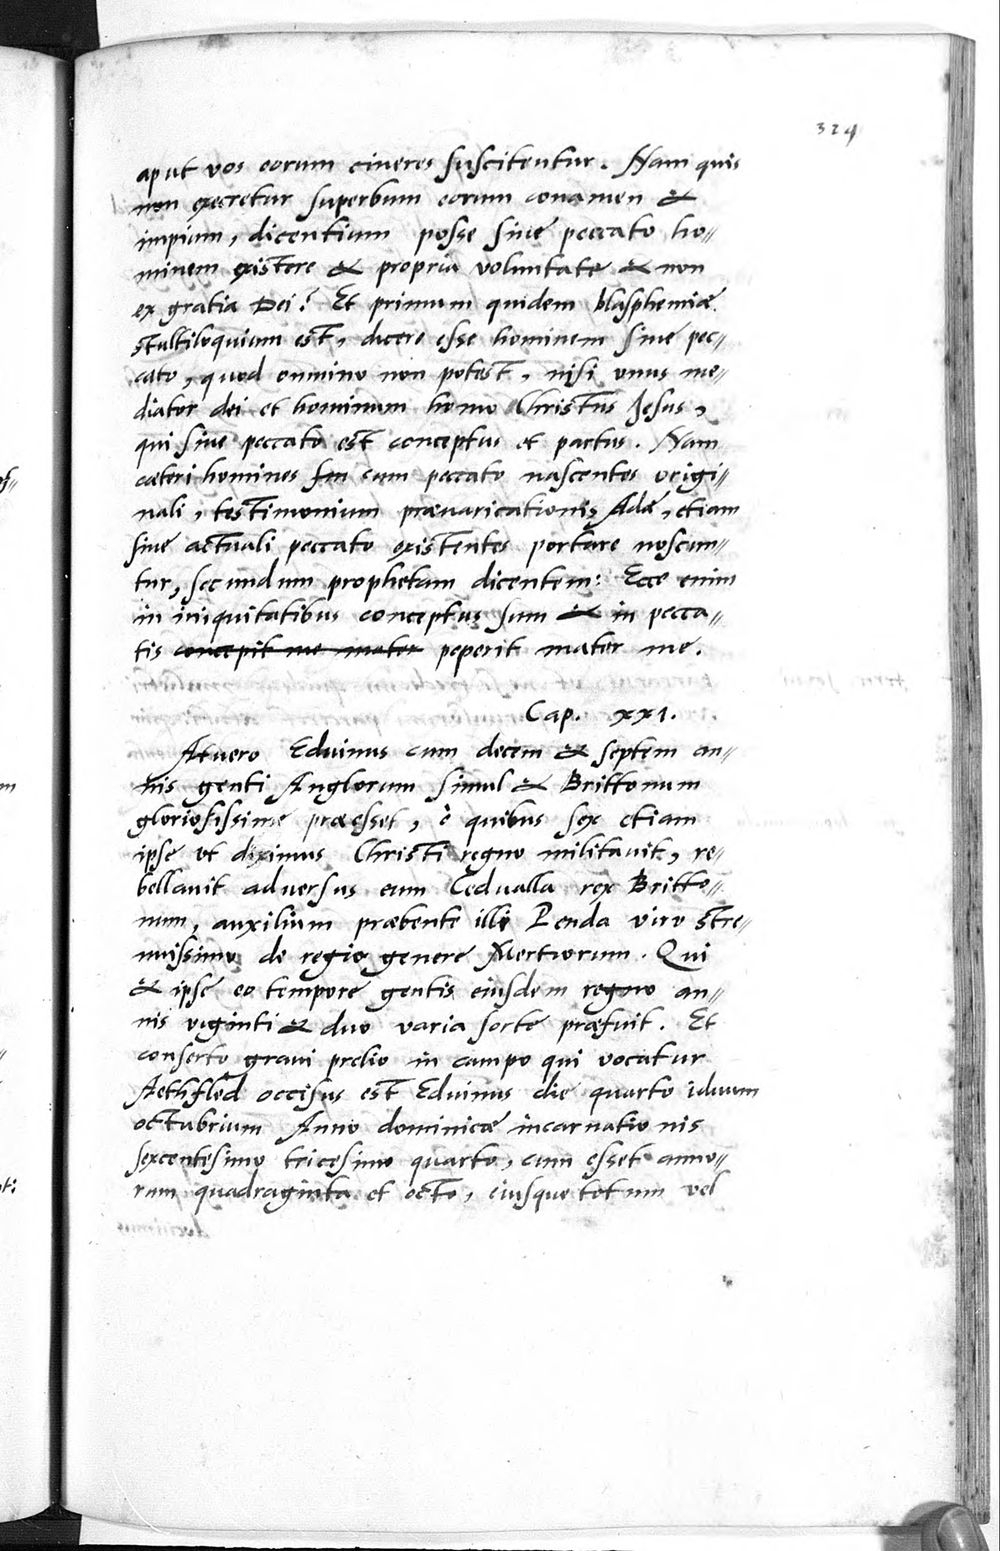 324
aput vos eorum cineres suscitentur. Nam quis
non execretur superbum eorum conamen &
impium, dicentium posse sine peccato ho„
minem existere & propria voluntate & non
ex gratia Dei? Et primum quidem blasphemiæ
stultiloquium est, dicere esse hominem sine pec„
cato, quod omnino non potest, nisi vnus me„
diator dei et hominum homo Christus Jesus,
qui sine peccato est conceptus et partus. Nam
cæteri homines cum peccato nascentes origi„
nali, testimonium præuaricationis Adæ, etiam
sine actuali peccato existentes portare noscun„
tur, secundum prophetam dicentem: Ecce enim
in iniquitatibus conceptus sum & in pecca„
tis concepit me mater peperit mater me.
Cap. XXI.
At uero Eduinus cum decem & septem an„
nis genti Anglorum simul & Brittonum
gloriosissime præesset, è quibus sex etiam
ipse vt diximus Christi regno militauit, re„
bellauit aduersus eum Cedualla rex Britto„
num, auxilium præbente illi Penda viro stre„
nuissimo de regio genere Mertiorum. Qui
& ipse eo tempore gentis eiusdem regno an„
nis viginti & duo varia sorte præfuit. Et
conserto graui prelio in campo qui vocatur
Aethfled occisus est Eduinus die quarto iduum
octubrium Anno dominicæ incarnationis
sexcentesimo tricesimo quarto, cum esset anno„
rum quadraginta et octo, eiusque totum vel